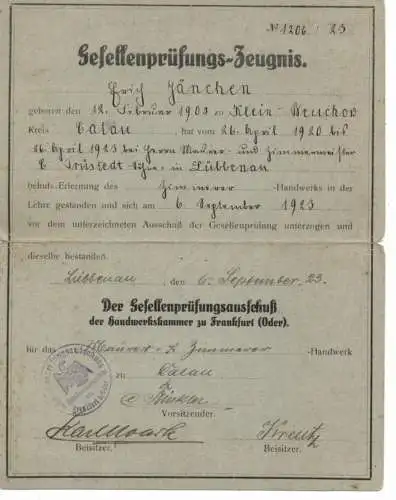 № 1206 / 23
Gesellenprüfungs-Zeugnis.
Erich Jänchen
geboren den 12. Februar 1903 zu Klein-Beuchow
Kreis Calau, hat vom 26. April 1920 bis
26. April 1923 bei Herrn Maurer- und Zimmermeister
C. Trüstedt in Lübbenau
behufs Erlernung des Zimmerer-Handwerks in der
Lehre gestanden und sich am 6. September 1923
vor dem unterzeichneten Ausschuß der Gesellenprüfung unterzogen und
dieselbe bestanden.
Lübbenau, den 6. September 23.
Der Gesellenprüfungsausschuß
der Handwerkskammer zu Frankfurt (Oder).
für das Maurer- & Zimmerer-Handwerk
zu Calau
Vorsitzender.
Kreutz
Beisitzer.
Beisitzer.